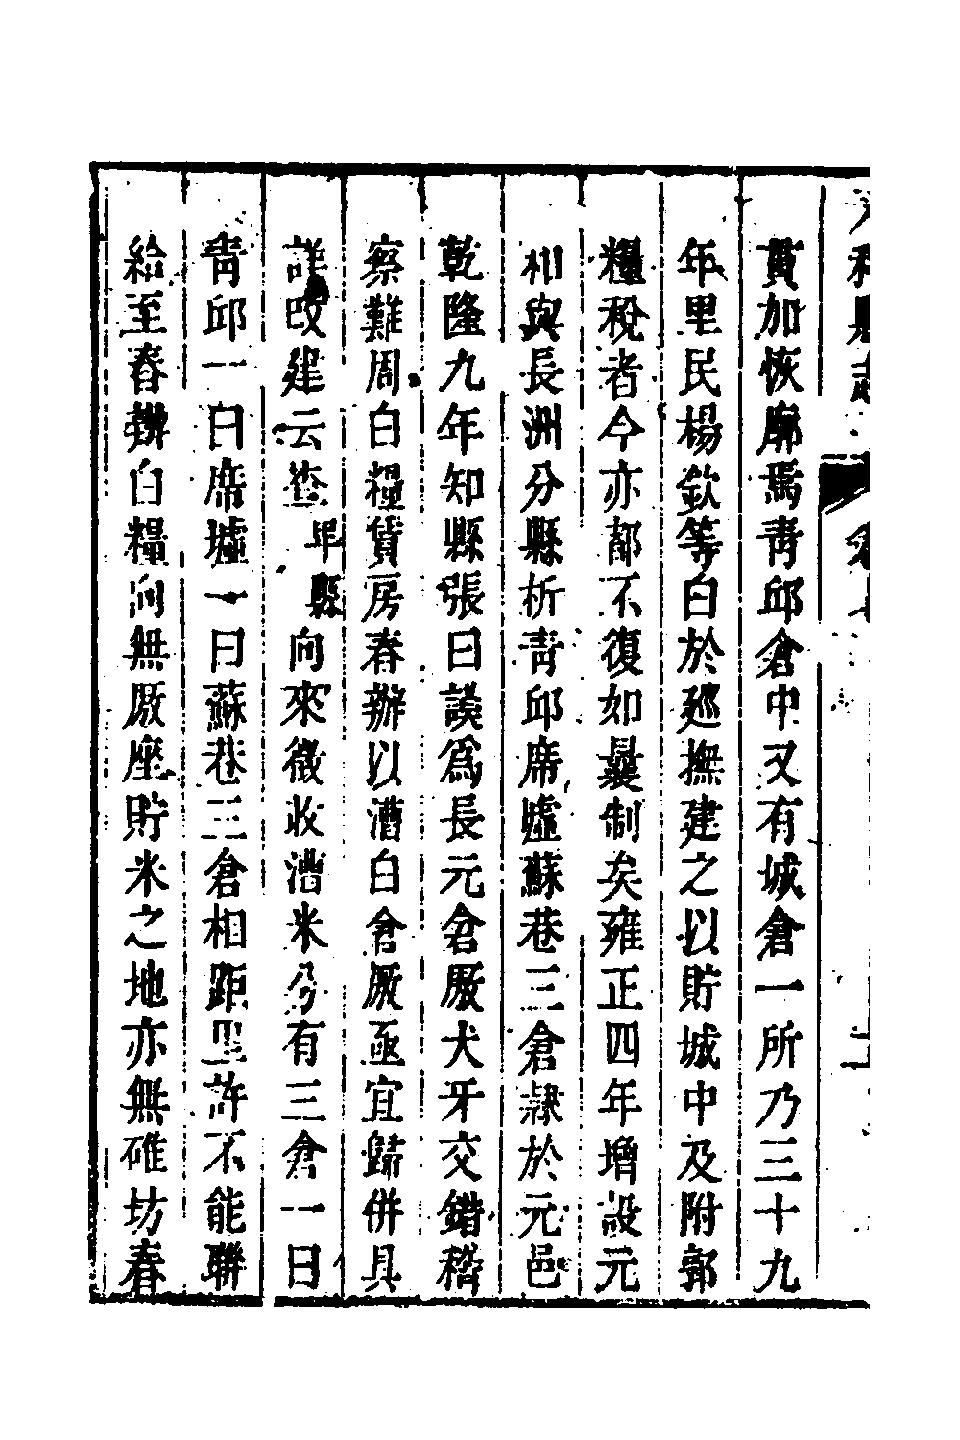 貫加恢廓焉靑邱倉中又有城倉一所乃三十九
年里民楊欽等白於廵撫建之以貯城中及附郭
糧稅者今亦都不復如曩制矣雍正四年增設元
和與長洲分縣析靑邱席墟蘇巷三倉隷於元邑
乾隆九年知縣張曰謨爲長元倉厫犬牙交錯稽
察難周白糧貲房舂辦以漕白倉厫亟宜歸併具
詳改建云查卑縣向來徵收漕米分有三倉一曰
靑邱一曰席墟一曰蘇巷三倉相距里許不能聯
給至舂辦白糧向無厫座貯米之地亦無碓坊舂